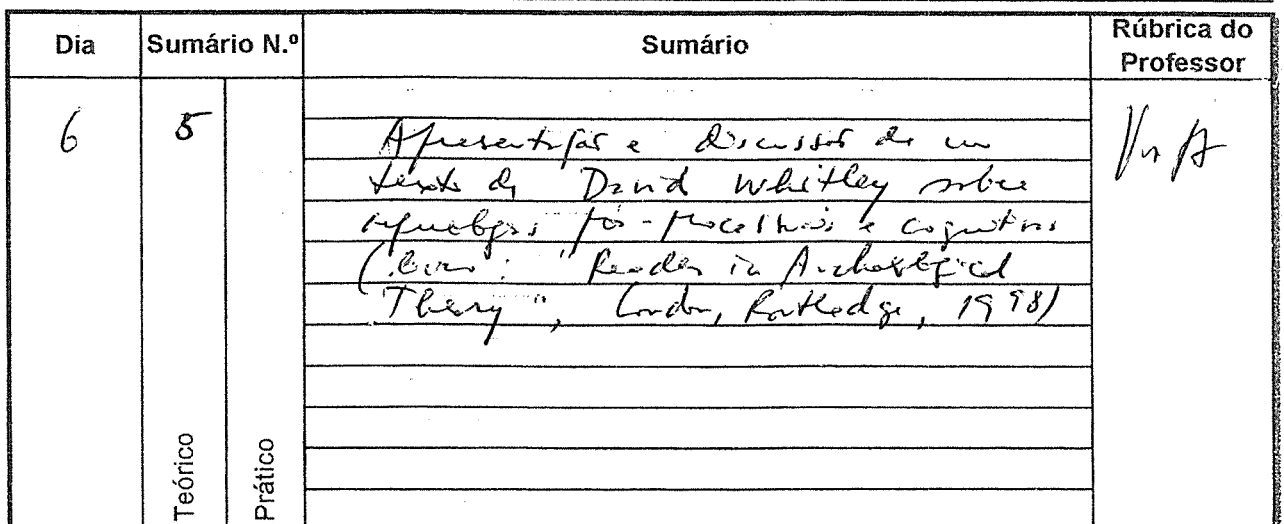 Dia Sumário N.º Sumário Rúbrica do Professor
6 5
Apresentação e discussão de um
texto de David Whitley sobre
arqueologias pós-processuais e cognitivas
(livro: "Reader in Archaeological
Theory", London, Routledge, 1998)
Teórico
Prático